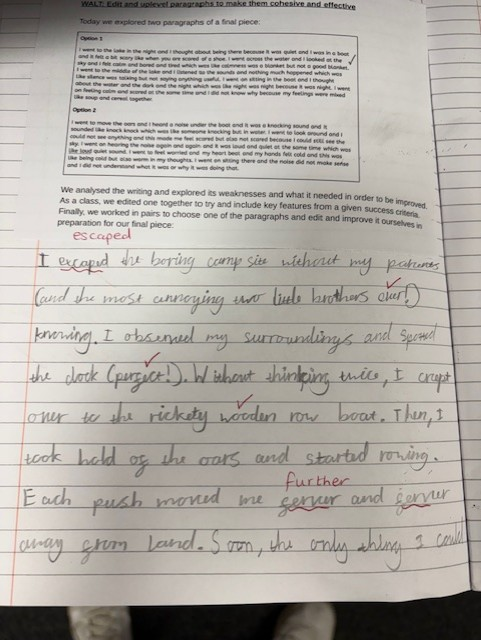 WALT: Edit and uplevel paragraphs to make them cohesive and effective
Today we explored two paragraphs of a final piece:
Option 1
I went to the lake in the night and I thought about being there because it was quiet and I was in a boat
and it felt a bit scary like when you are scared of a shoe. I went across the water and I looked at the
sky and I felt calm and bored and tired which was like calmness was a blanket but not a good blanket.
I went to the middle of the lake and I listened to the sounds and nothing much happened which was
like silence was talking but not saying anything useful. I went on sitting in the boat and I thought
about the water and the dark and the night which was like night was night because it was night. I went
on feeling calm and scared at the same time and I did not know why because my feelings were mixed
like soup and cereal together.
Option 2
I went to move the oars and I heard a noise under the boat and it was a knocking sound and it
sounded like knock knock which was like someone knocking but in water. I went to look around and I
could not see anything and this made me feel scared but also not scared because I could still see the
sky. I went on hearing the noise again and again and it was loud and quiet at the same time which was
like loud quiet sound. I went to feel worried and my heart beat and my hands felt cold and this was
like being cold but also warm in my thoughts. I went on sitting there and the noise did not make sense
and I did not understand what it was or why it was doing that.
We analysed the writing and explored its weaknesses and what it needed in order to be improved.
As a class, we edited one together to try and include key features from a given success criteria.
Finally, we worked in pairs to choose one of the paragraphs and edit and improve it ourselves in
preparation for our final piece:
escaped
I excaped the boring camp site without my parents
(and the most annoying two little brothers ever!)
knowing. I observed my surroundings and spoted
the dock (perfect!). Without thinking twice, I crept
over to the rickety wooden row boat. Then, I
took hold of the oars and started rowing.
further
Each push moved me ferver and ferver
away from land. Soon, the only thing I could